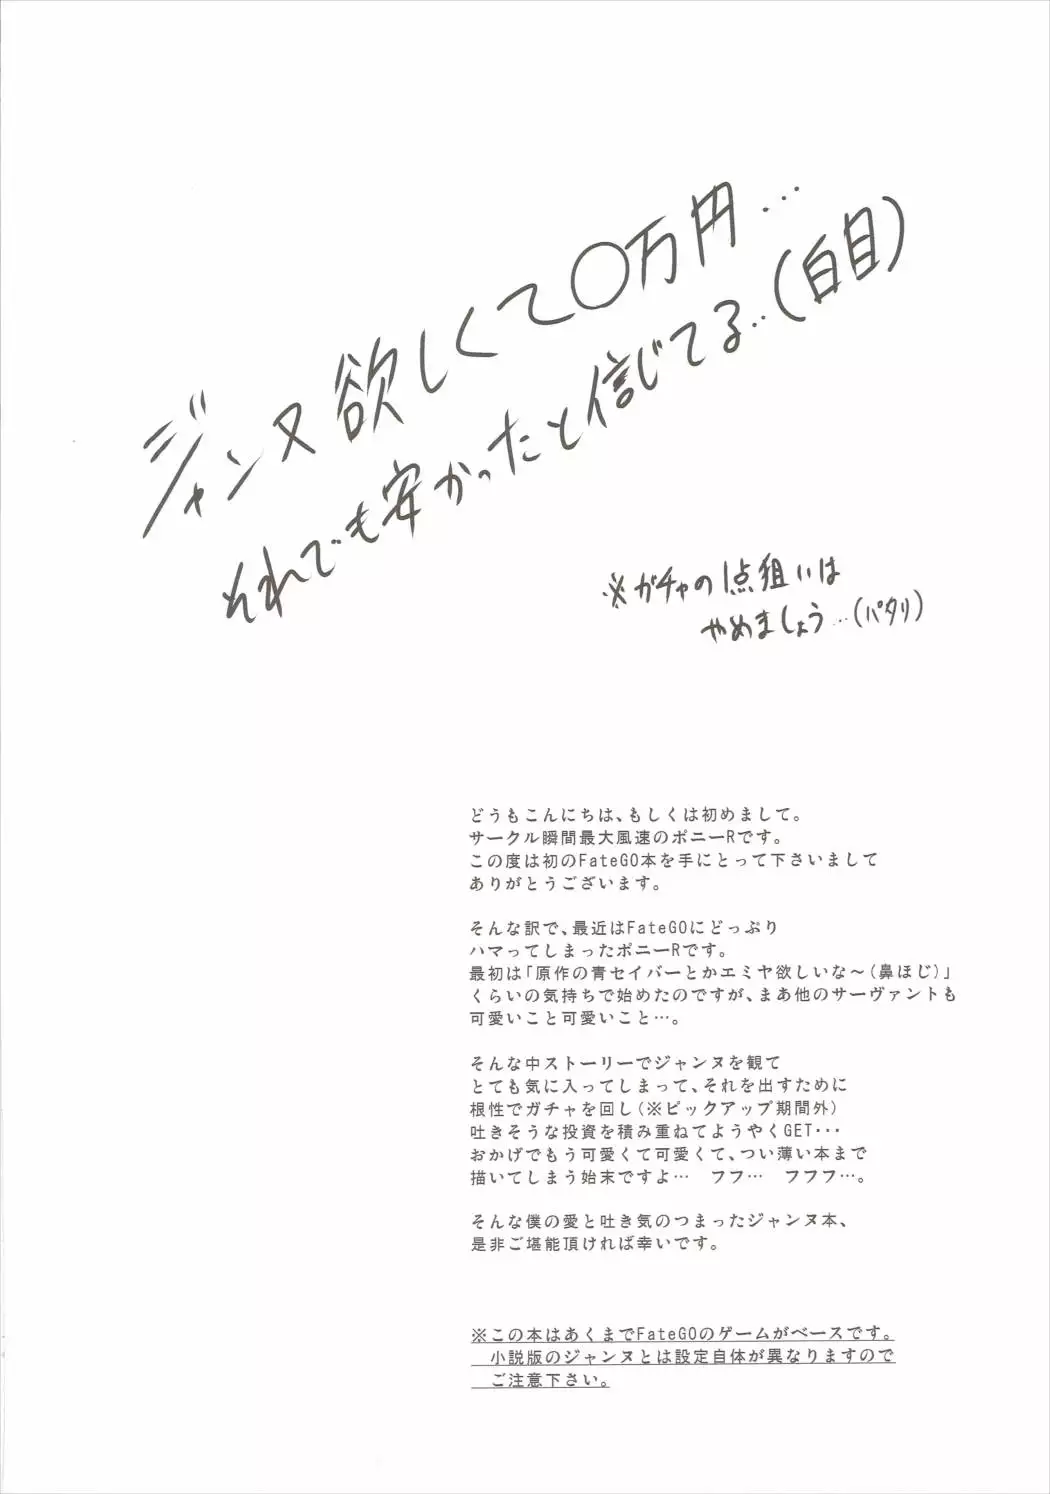 ジャンヌ欲しくて〇万円…
それでも安かったと信じてる…(白目)
※ガチャの1点狙いは
やめましょう…(パタリ)
どうもこんにちは、もしくは初めまして。
サークル瞬間最大風速のポニーRです。
この度は初のFateGO本を手にとって下さいまして
ありがとうございます。
そんな訳で、最近はFateGOにどっぷり
ハマってしまったポニーRです。
最初は「原作の青セイバーとかエミヤ欲しいな〜(鼻ほじ)」
くらいの気持ちで始めたのですが、まあ他のサーヴァントも
可愛いこと可愛いこと…。
そんな中ストーリーでジャンヌを観て
とても気に入ってしまって、それを出すために
根性でガチャを回し(※ピックアップ期間外)
吐きそうな投資を積み重ねてようやくGET･･･
おかげでもう可愛くて可愛くて、つい薄い本まで
描いてしまう始末ですよ…　フフ…　フフフ…。
そんな僕の愛と吐き気のつまったジャンヌ本、
是非ご堪能頂ければ幸いです。
※この本はあくまでFateGOのゲームがベースです。
小説版のジャンヌとは設定自体が異なりますので
ご注意下さい。